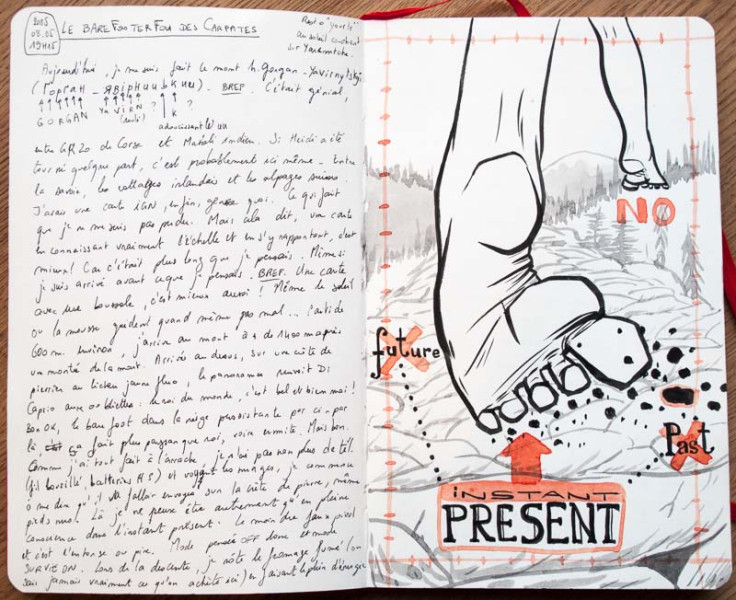 2015
08.05
19H15
LE BAREFOOTERFOU DES CARPATES
Resto "yourte"
au soleil couchant
sur Yaremtche.
Aujourd'hui, je me suis fait le mont h.Gorgan-Yavirnytskyi
BREF. C'était génial,
GORGAN
?
K
adoucissant
entre GR20 de Corse et Massif indien. Si Heidi a été
tourné quelque part, c'est probablement ici même. Entre
la Savoie, les cottages irlandais et les alpages suisses.
J'avais une carte IGN, enfin, genre quoi. Ce qui fait
que je ne me suis pas perdu. Mais cela dit, une carte
en connaissant vraiment l'échelle et en s'y rapportant, c'est
mieux! Car c'était plus long que je pensais. Même si
je suis arrivé avant ce que je pensais. BREF. Une carte
avec une boussole, c'est mieux aussi! Même le soleil
ou la mousse guident quand même pas mal...
600m environ, j'arrive au mont à + de 1400m après
un monté de la mort. Arrivée au dessus, sur une crête de
pierrier au lichen jaune fluo, le panorama Di
Caprio aux oubliettes. Le roi du monde, c'est bel et bien moi!
Bon OK, le bare foot dans la neige persistante par ci-par
là, ça fait plus paysan que roi, voire ermite. Mais bon.
Comme j'ai tout fait à l'arrache, je n'ai pas non plus de tél.
(fil bousillé, batterie HS) et voyant les nuages, je commence
à me dire qu'il va falloir envoyer sur la crête de pierre, même
pieds nus. Là je ne peux être autrement qu'en pleine
conscience dans l'instant présent. Le moindre faux pied
et c'est l'entorse ou pire. Mode pensée OFF donc et mode
SURVIE ON. Lors de la descente, je note le fromage fumé (on
sait jamais vraiment ce qu'on achète ici) en faisant le plein d'énergie
NO
future
Past
INSTANT
PRESENT